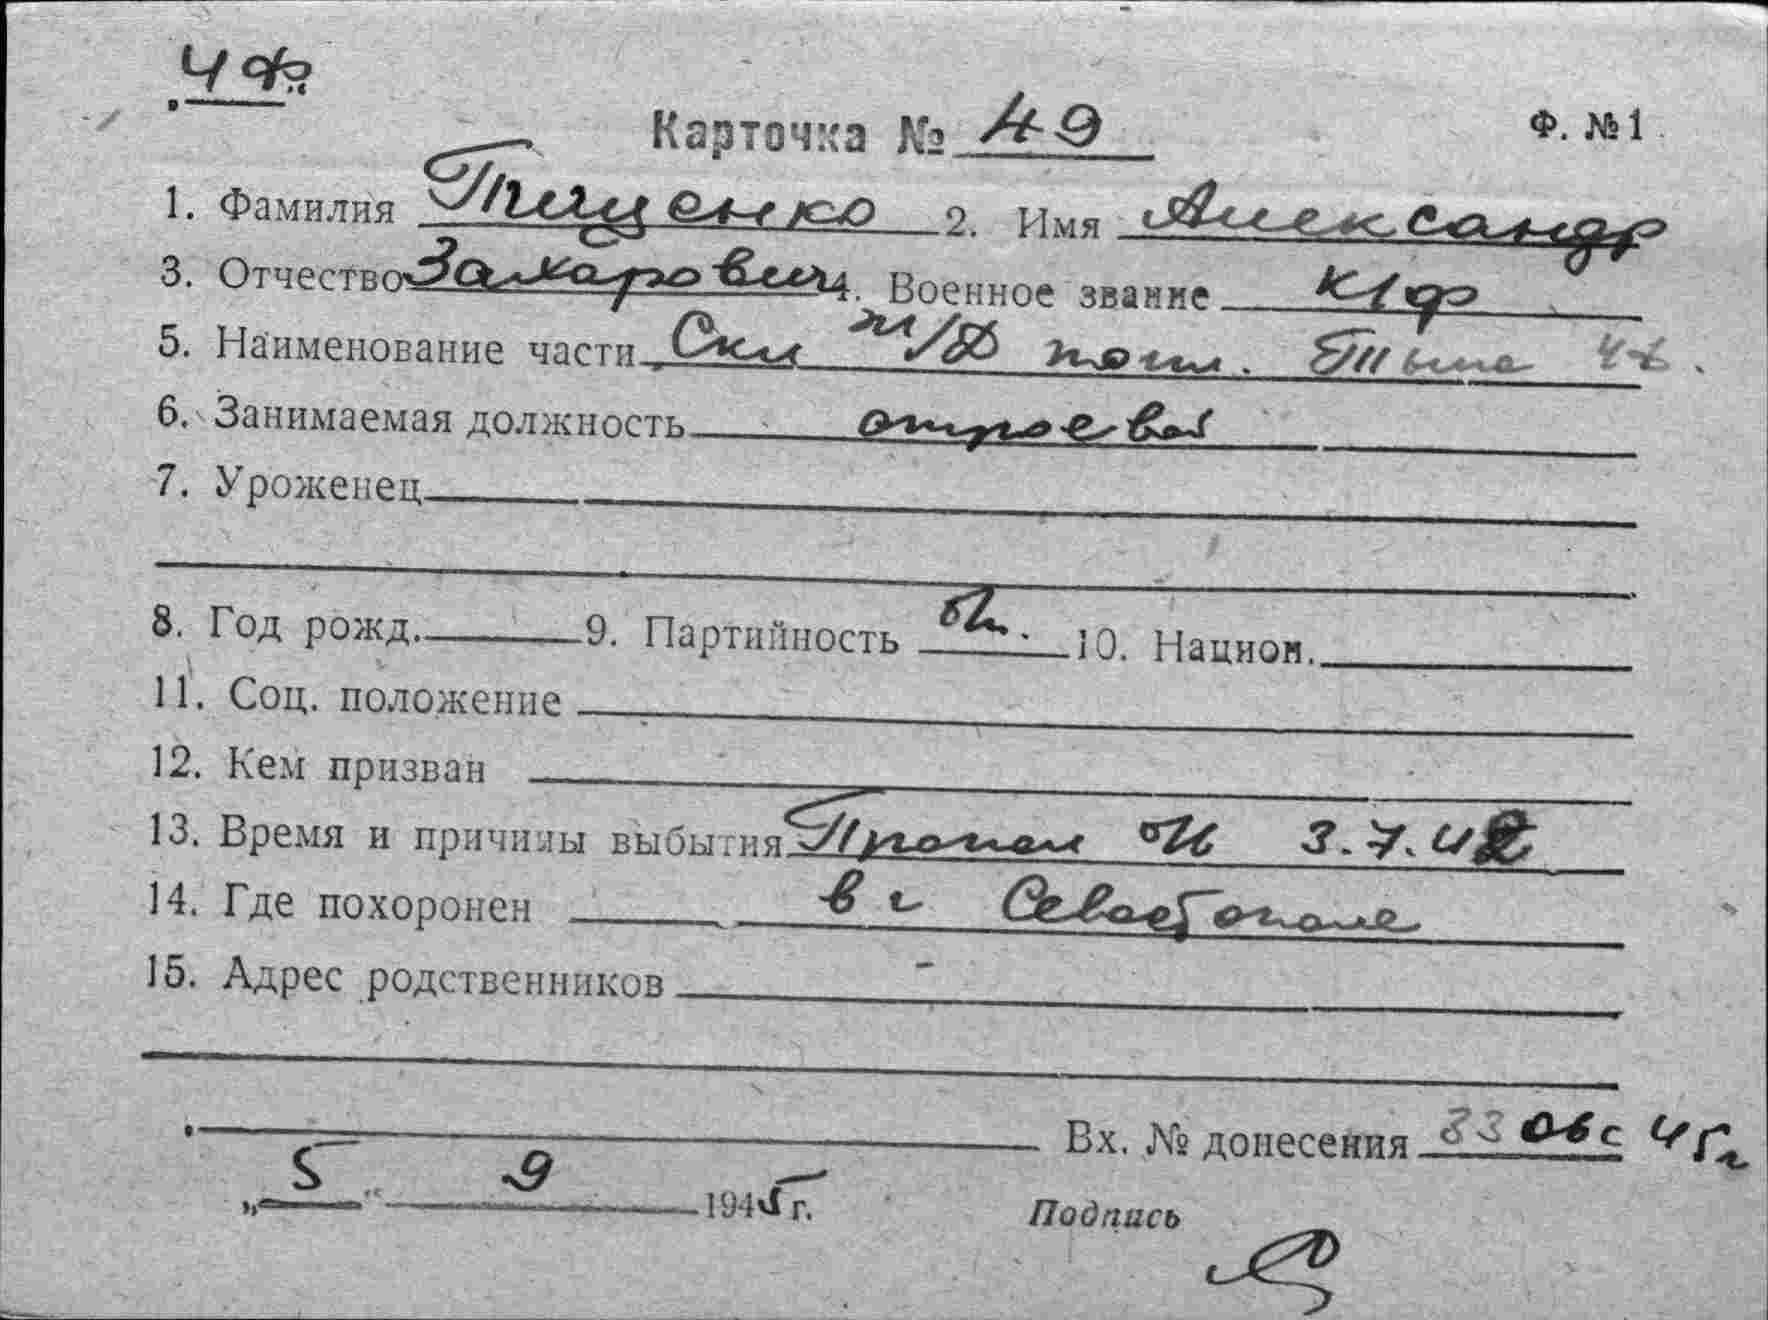 ЧФ
Карточка № 49 Ф. №1
1. Фамилия Тищенко 2. Имя Александр
3. Отчество Захарович 4. Военное звание к/ф
5. Наименование части Скл Тыла
6. Занимаемая должность строевая
7. Уроженец
8. Год рожд. 9. Партийность б/п. 10. Национ.
11. Соц. положение
12. Кем призван
13. Время и причины выбытия Пропал 3.7.42
14. Где похоронен в г Севастополе
15. Адрес родственников
Вх. № донесения 33 овс 45г
„5" 9 1945 г.
Подпись